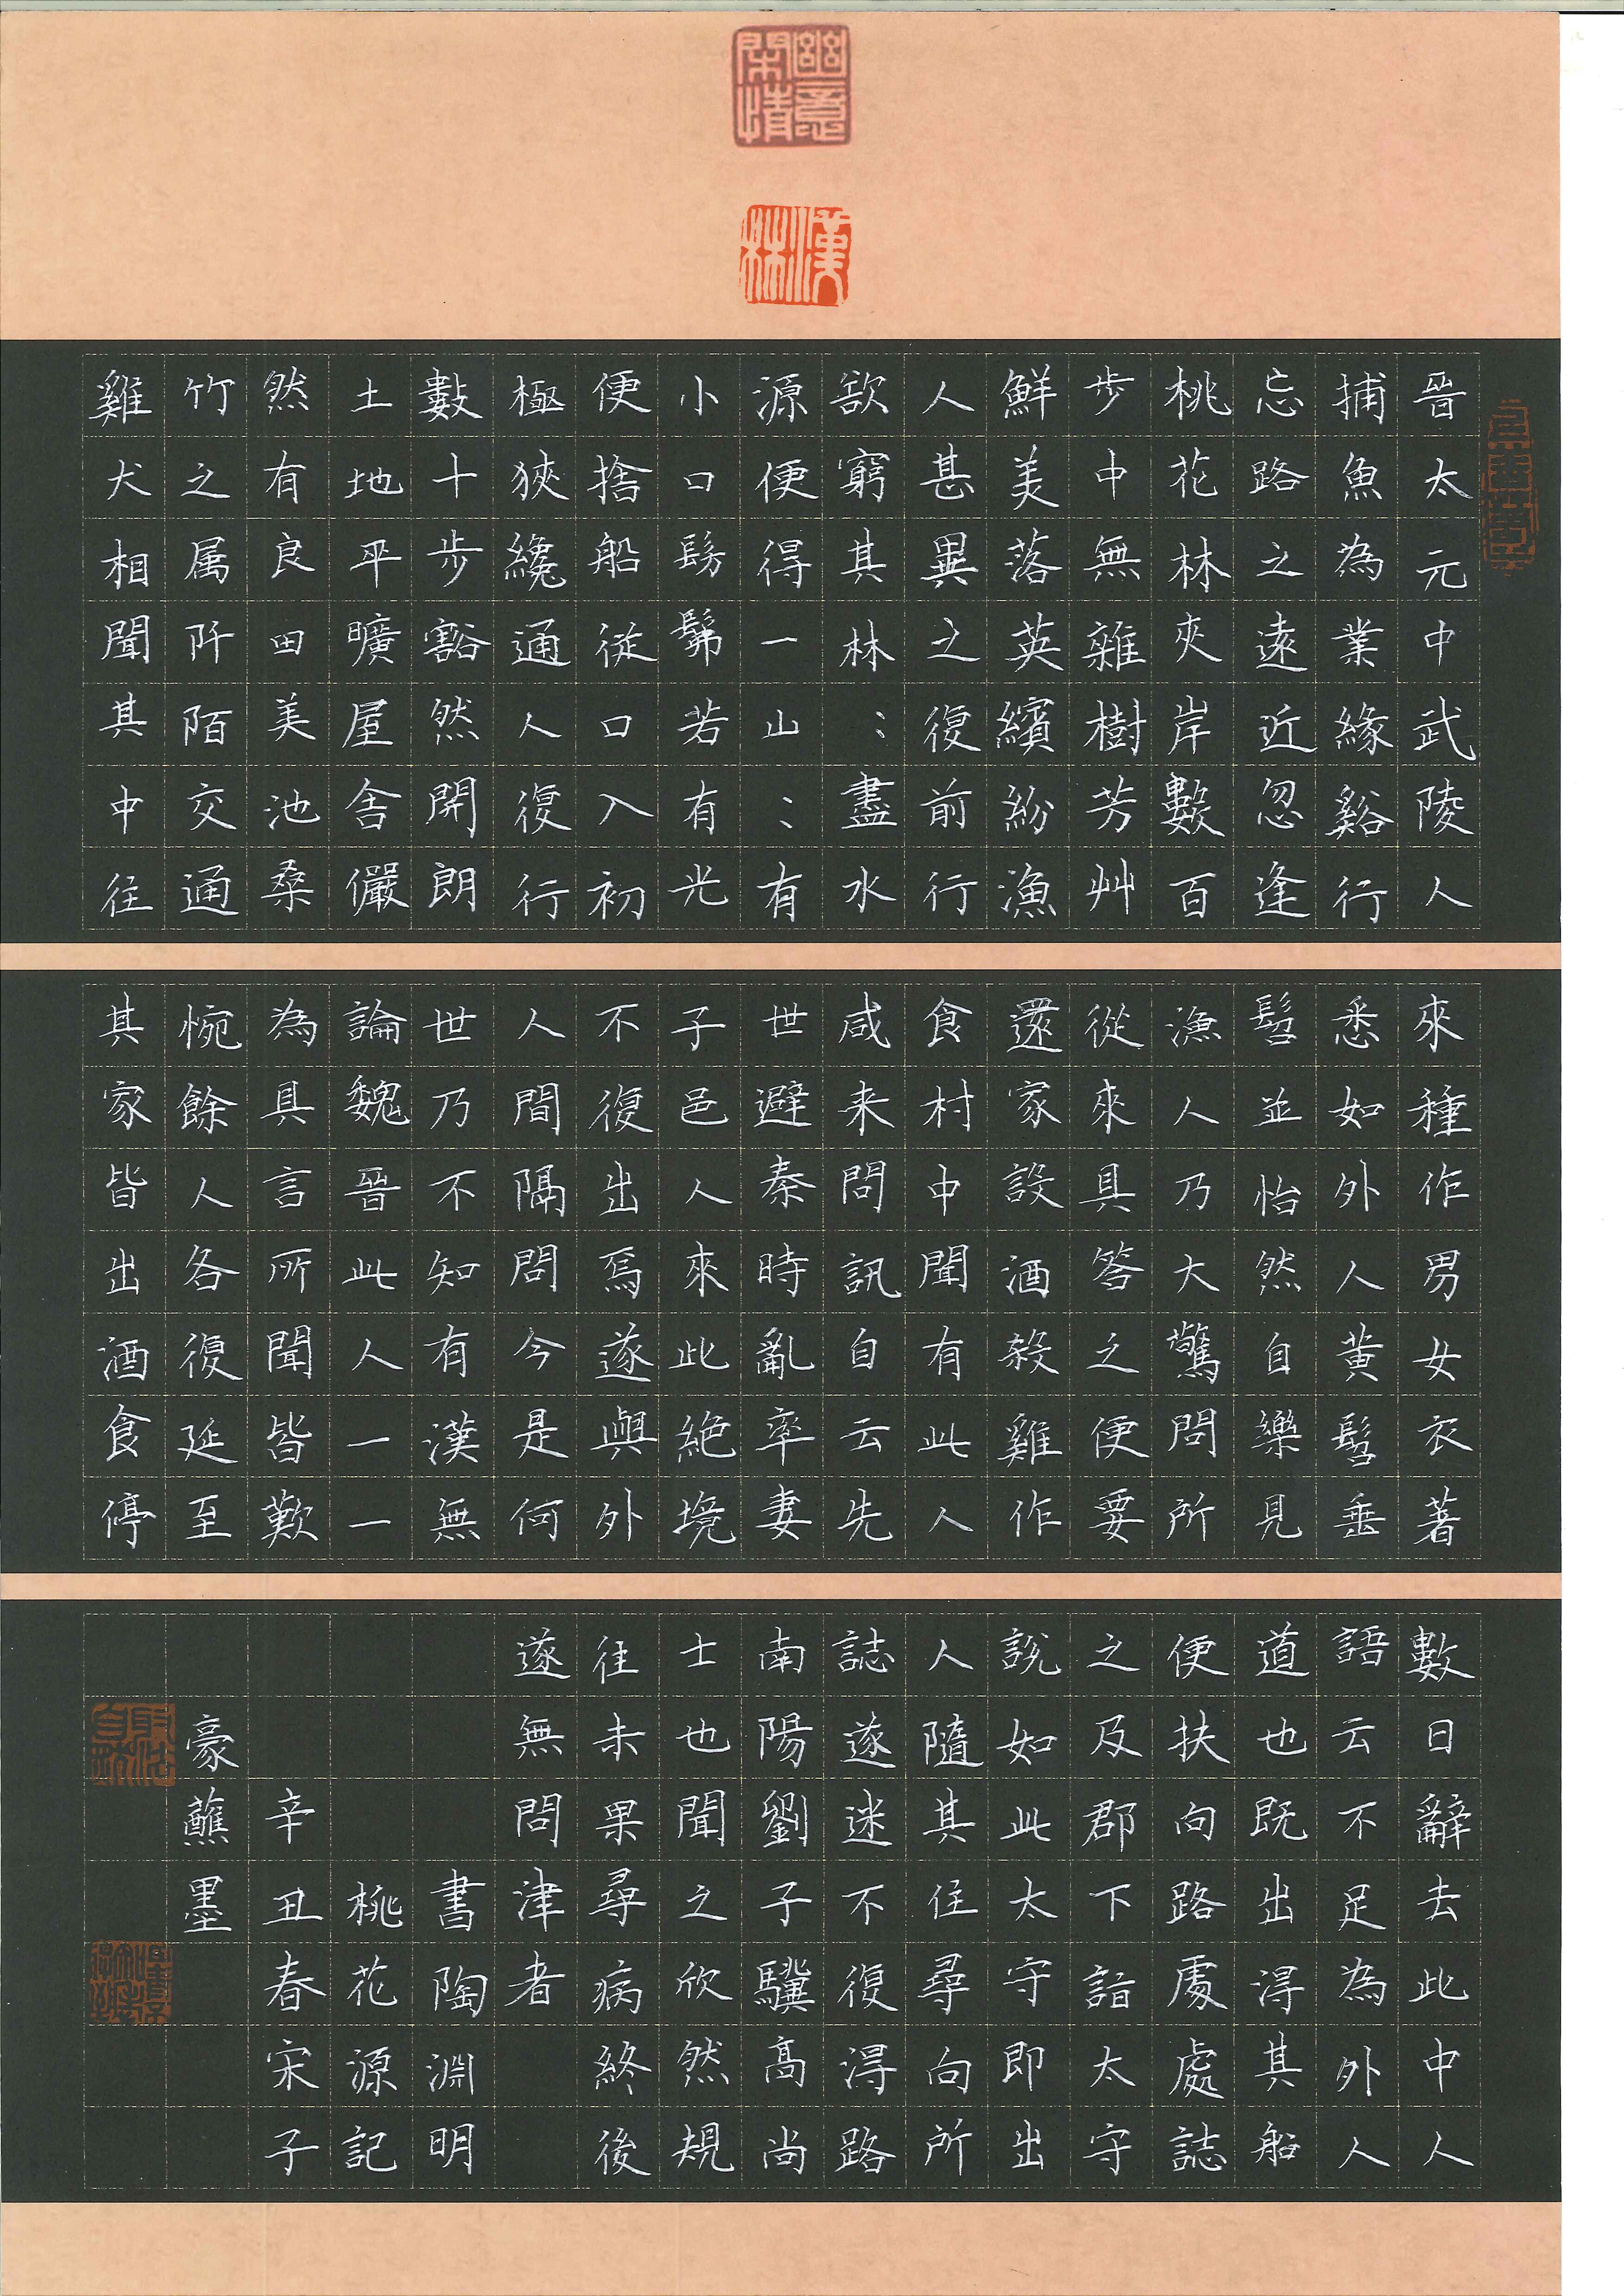 幽意閑情
漢林
晉太元中武陵人
捕魚為業緣谿行
忘路之遠近忽逢
桃花林夾岸數百
步中無雜樹芳艸
鮮美落英繽紛漁
人甚異之復前行
欲窮其林：盡水
源便得一山：有
小口髣髴若有光
便捨船從口入初
極狹纔通人復行
數十步豁然開朗
土地平曠屋舍儼
然有良田美池桑
竹之属阡陌交通
雞犬相聞其中往
來種作男女衣著
悉如外人黃髫垂
髫並怡然自樂見
漁人乃大驚問所
從來具答之便要
還家設酒殺雞作
食村中聞有此人
咸来問訊自云先
世避秦時亂率妻
子邑人來此絕境
不復出焉遂與外
人間隔問今是何
世乃不知有漢無
論魏晉此人一一
為具言所聞皆歎
惋餘人各復延至
其家皆出酒食停
數日辭去此中人
語云不足為外人
道也既出得其船
便扶向路處處誌
之及郡下詣太守
說如此太守即出
人隨其往尋向所
誌遂迷不復得路
南陽劉子驥高尚
士也聞之欣然規
往未果尋病終後
遂無問津者
書陶淵明
桃花源記
辛丑春宋子
豪蘸墨